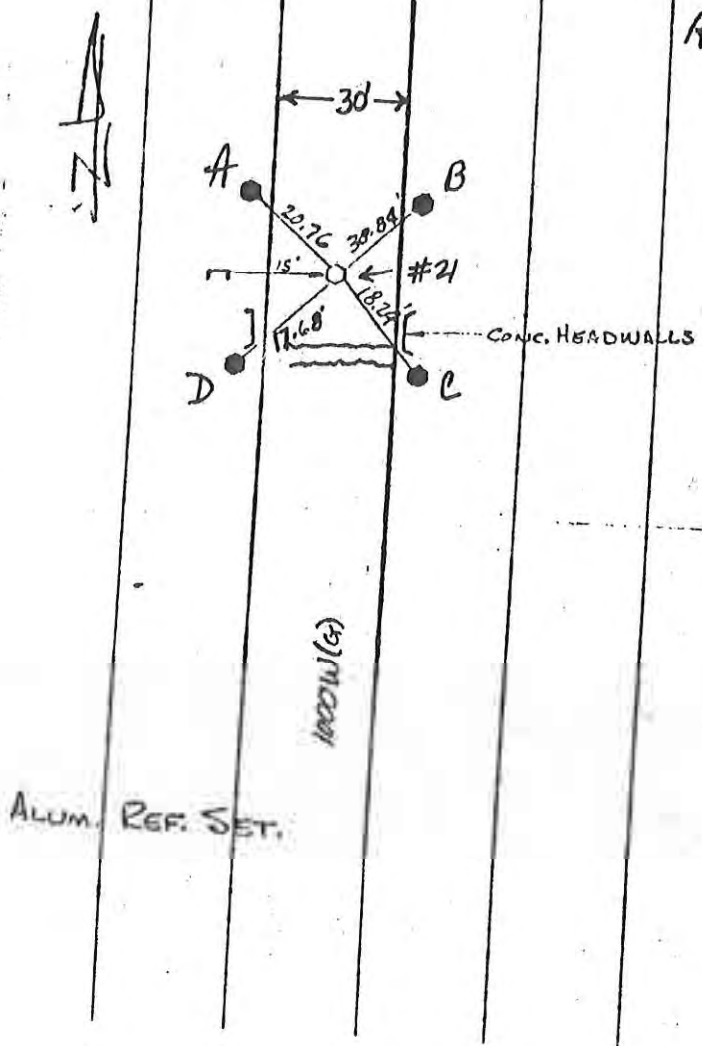 N
30'
A
B
20.76
38.84'
15'
#21
18.24'
CONC. HEADWALLS
D
C
1000W(G)
ALUM. REF. SET.